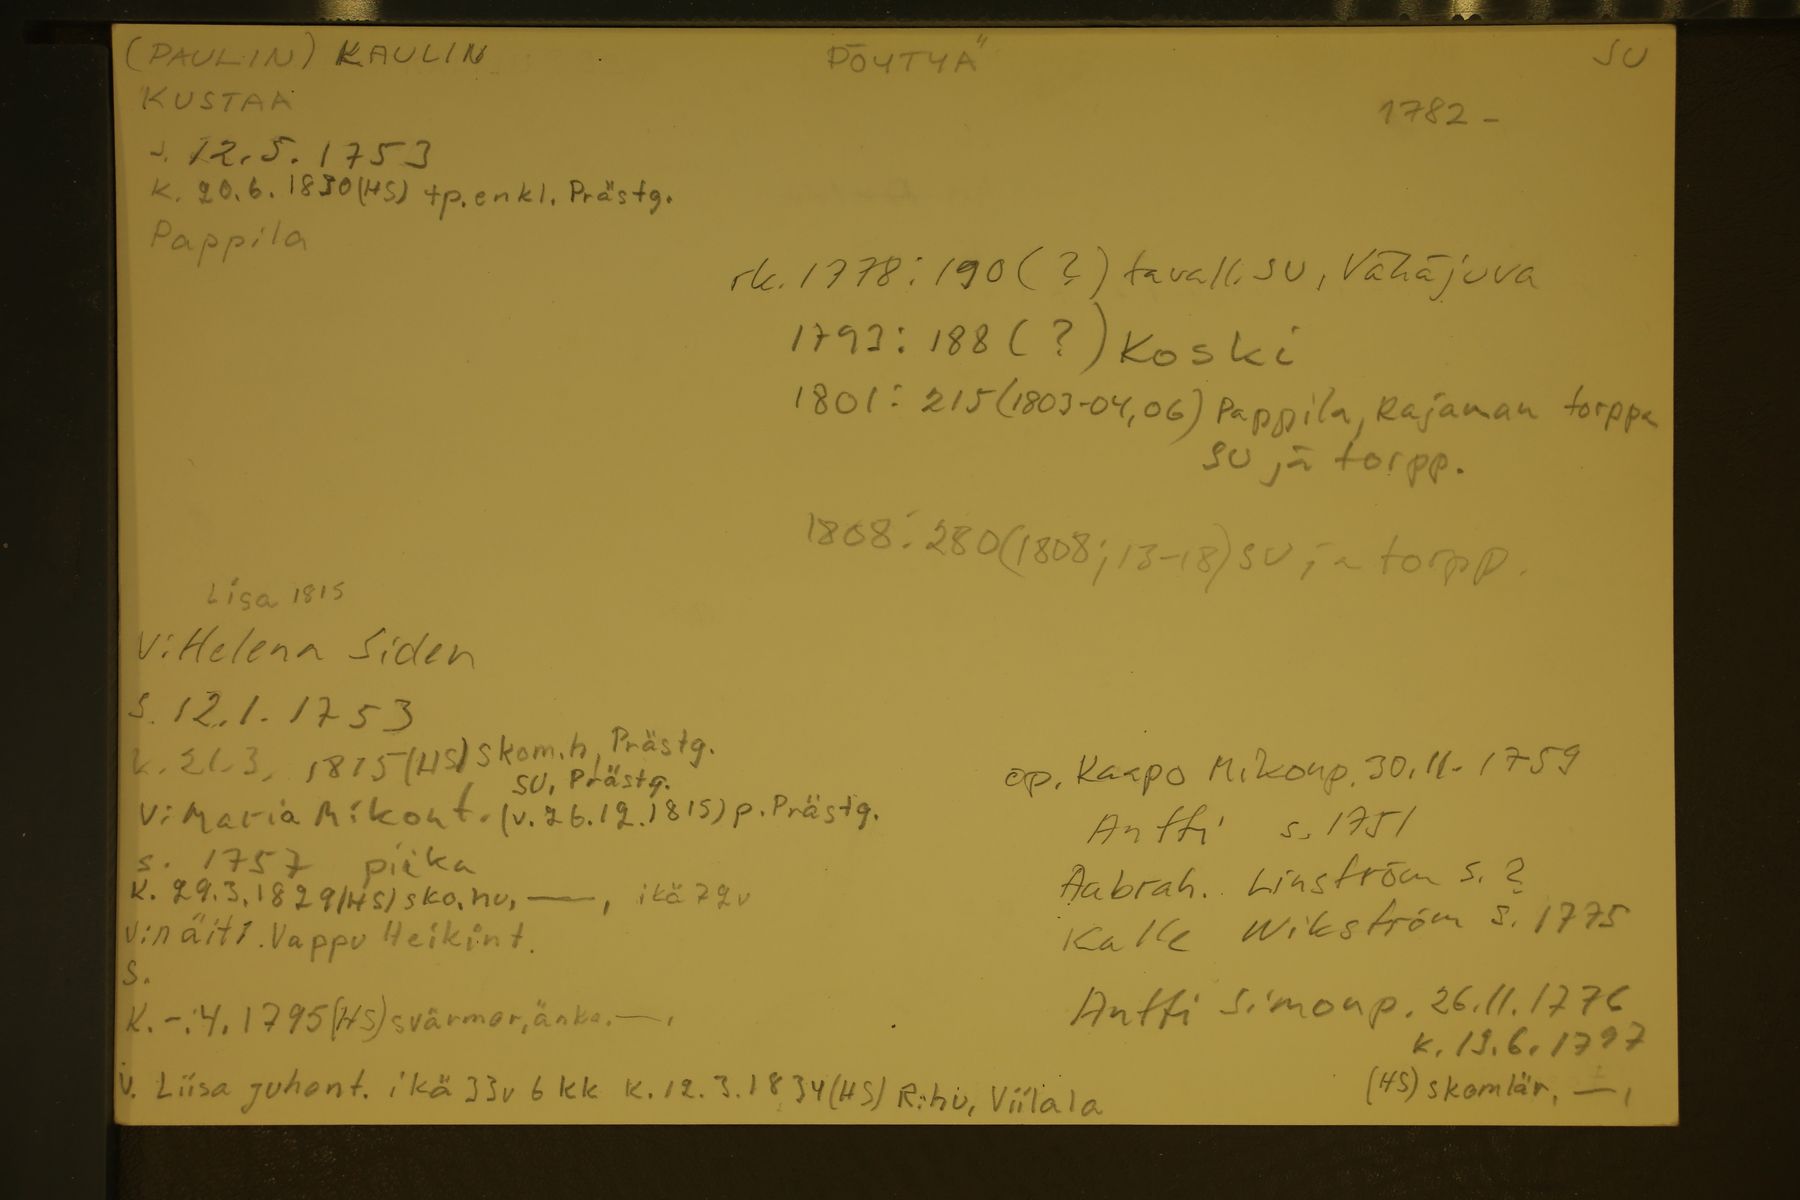 (PAULIN) KAULIN PÖYTYÄ SU
KUSTAA
1782 -
s. 12.5. 1753
k. 20.6. 1830 (HS) tp. enkl. Prästg.
Pappila
rk. 1778: 190 (?) tavall. SU, Vähäjuva
1793: 188 (?) Koski
1801: 215 (1803-04, 06) Pappila, Rajaman torppa
SU ja torpp.
1808: 280 (1808; 13-18) SU ja torpp.
Lisa 1815
V: Helena Siden
s. 12.1. 1753
k. 21.3. 1815 (HS) skom.h, Prästg.
SU, Prästg.
V: Maria Mikont. (v. 26.12.1815) p. Prästg.
s. 1757 piika
k. 29.3.1829 (HS) sko.hu, —, ikä 72 v
V:n äiti. Vappu Heikint.
s.
k. -.4. 1795 (HS) svärmor, änka. —,
V. Liisa Juhont. ikä 33v 6 kk k. 12.3.1834 (HS) R:hu, Viilala
op. Kaapo Mikonp. 30.11.1759
Antti s. 1751
Aabrah. Linström s. ?
Kalle Wikström s. 1775
Antti Simonp. 26.11.1776
k. 19.6.1797
(HS) skomlär. —,